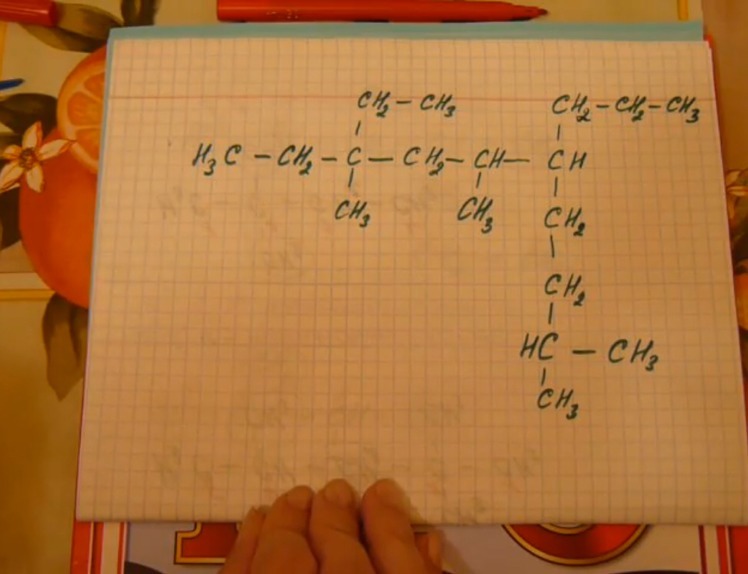 CH₂ – CH₃ CH₂ – CH₂ – CH₃
H₃C – CH₂ – C – CH₂ – CH – CH
CH₃ CH₃ CH₂
CH₂
HC – CH₃
CH₃